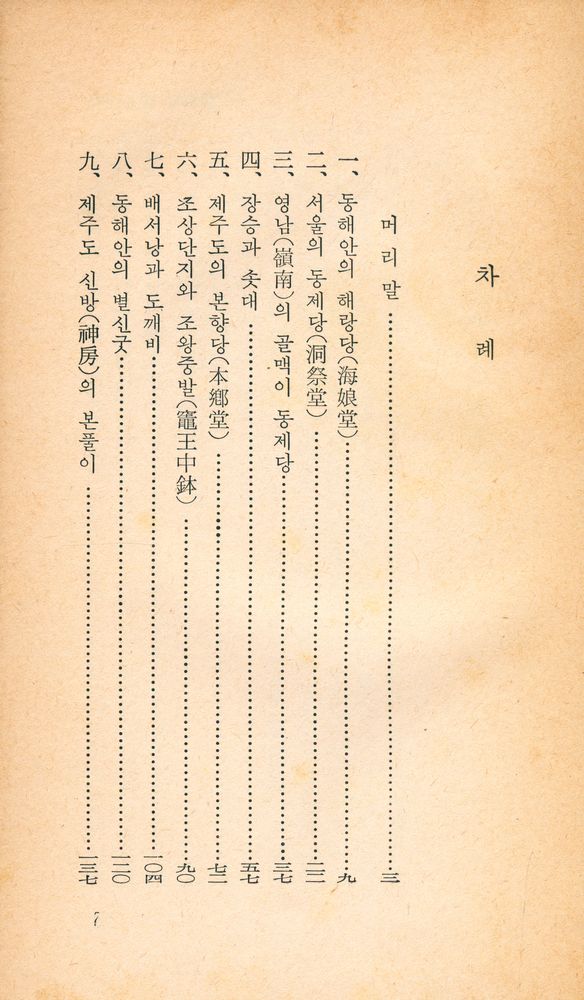 차례
머리말……三
一、동해안의 해랑당(海娘堂)……九
二、서울의 동제당(洞祭堂)……二二
三、영남(嶺南)의 골맥이 동제당……三七
四、장승과 솟대……五七
五、제주도의 본향당(本鄕堂)……七二
六、조상단지와 조왕중발(竈王中鉢)……九〇
七、배서낭과 도깨비……一〇四
八、동해안의 별신굿……一二〇
九、제주도 신방(神房)의 본풀이……一三七
7